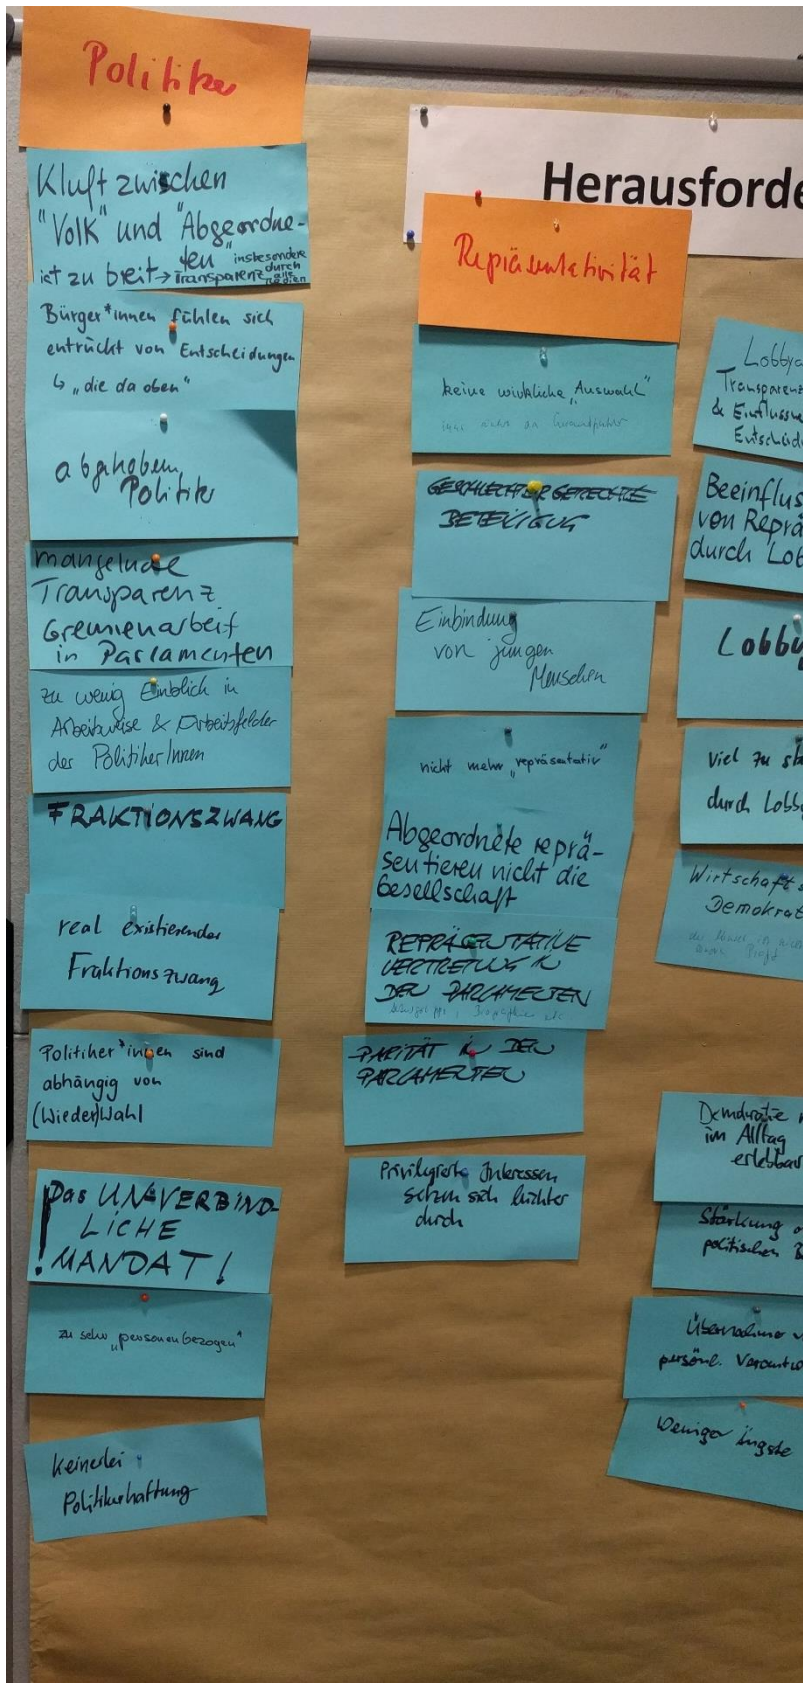 Politiker
Kluft zwischen
"Volk" und "Abgeordne-
ten" insbesondere
ist zu breit → Transparenz durch
alle
Medien
Bürger*innen fühlen sich
entrückt von Entscheidungen
↳ „die da oben"
abgehobene
Politik
mangelnde
Transparenz
Gremienarbeit
in Parlamenten
zu wenig Einblick in
Arbeitsweise & Arbeitsfelder
der PolitikerInnen
FRAKTIONSZWANG
real existierender
Fraktionszwang
Politiker*innen sind
abhängig von
(Wieder)Wahl
Das UN-VERBIND-
LICHE
! MANDAT!
zu sehr „personenbezogen"
Keinerlei
Politikerhaftung
Herausforde
Repräsentativität
keine wirkliche „Auswahl"
GESCHLECHTERGERECHTE
BETEILIGUG
Einbindung
von jungen
Menschen
nicht mehr „repräsentativ"
Abgeordnete reprä-
sentieren nicht die
Gesellschaft
REPRÄSENTATIVE
VERTRETUNG IN
DEN PARLAMENTEN
PARITÄT IN DEN
PARLAMENTEN
Privilegierte Interessen
setzen sich leichter
durch
Lobby
Transparenz
& Einfluss
Entscheid
Beeinflus
von Reprä
durch Lob
Lobby
Viel zu sta
durch Lobby
Wirtschafts
Demokrat
Demokratie
im Alltag
erlebbar
Stärkung
politischen B
Übernahme v
persönl. Verantwo
Weniger Ängste